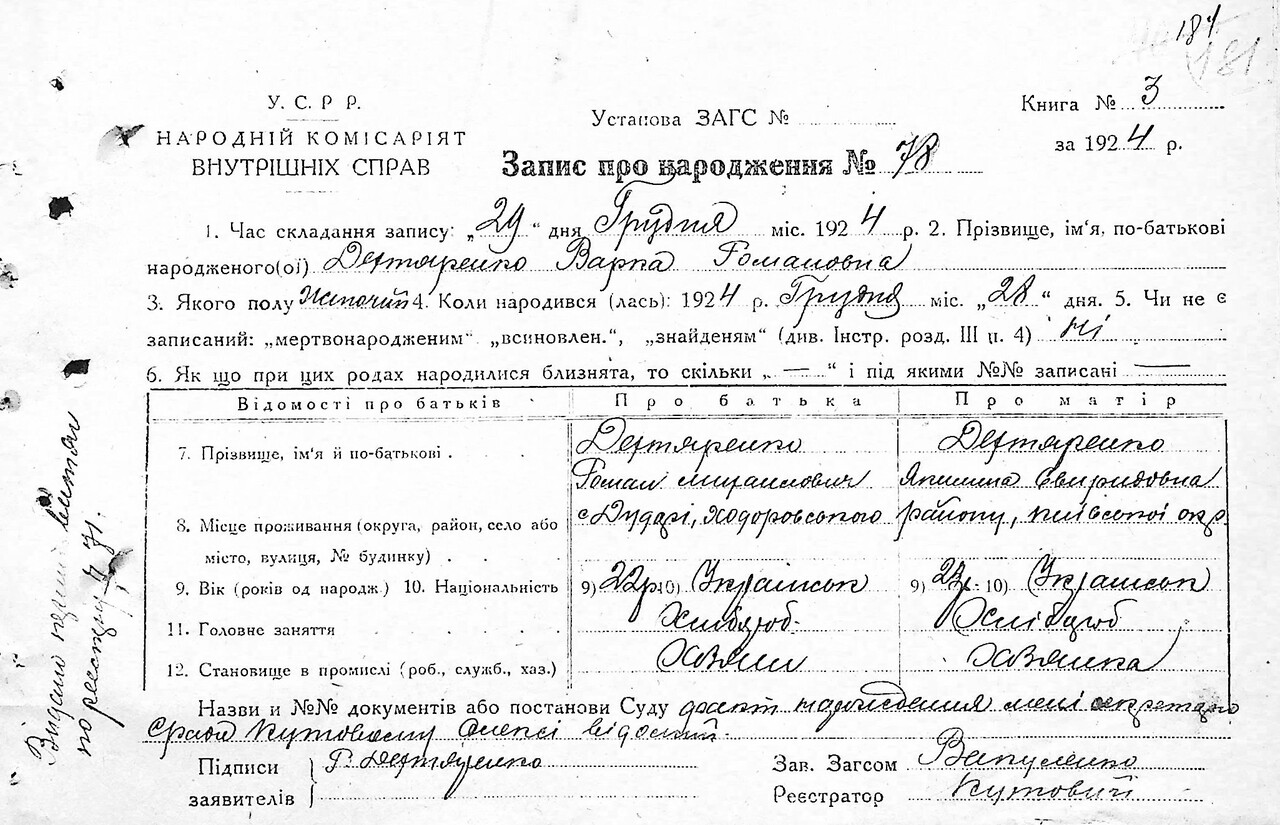 184
181
У. С. Р Р.
НАРОДНІЙ КОМІСАРІЯТ
ВНУТРІШНІХ СПРАВ
Установа ЗАГС №
Книга № 3
за 1924 р.
Запис про народження № 78
1. Час складання запису: „29“ дня Грудня міс. 1924 р. 2. Прізвище, ім'я, по-батькові
народженого(ої) Дехтяренко Варка Романовна
3. Якого полу Жіночий 4. Коли народився (лась): 1924 р. Грудня міс. „28“ дня. 5. Чи не є
записаний: „мертвонародженим“ „всиновлен.“, „знайденям“ (див. Інстр. розд. III п. 4) Ні
6. Як що при цих родах народилися близнята, то скільки „—“ і під якими №№ записані —
Відомості про батьків Про батька Про матір
7. Прізвище, ім'я й по-батькові . Дехтяренко Дехтяренко
Роман Михайлович Свиридовна
8. Місце проживання (округа, район, село або с Дударі, Ходоровського району, Київської окр.
місто, вулиця, № будинку) . .
9. Вік (років од народж.) 10. Національність 9) 22р. 10) Українск 9) 22р. 10) Українск
11. Головне заняття . . . . Хлібороб Хлібороб
12. Становище в промислі (роб., служб., хаз.) Хазяін Хазяйка
Назви и №№ документів або постанови Суду факт народження мені секретарю
сради Кутовому Олексі відомий.
Підписи
заявителів
Р. Дехтяренко
Зав. Загсом Вакуленко
Реєстратор Кутовий
Видано
по реестру